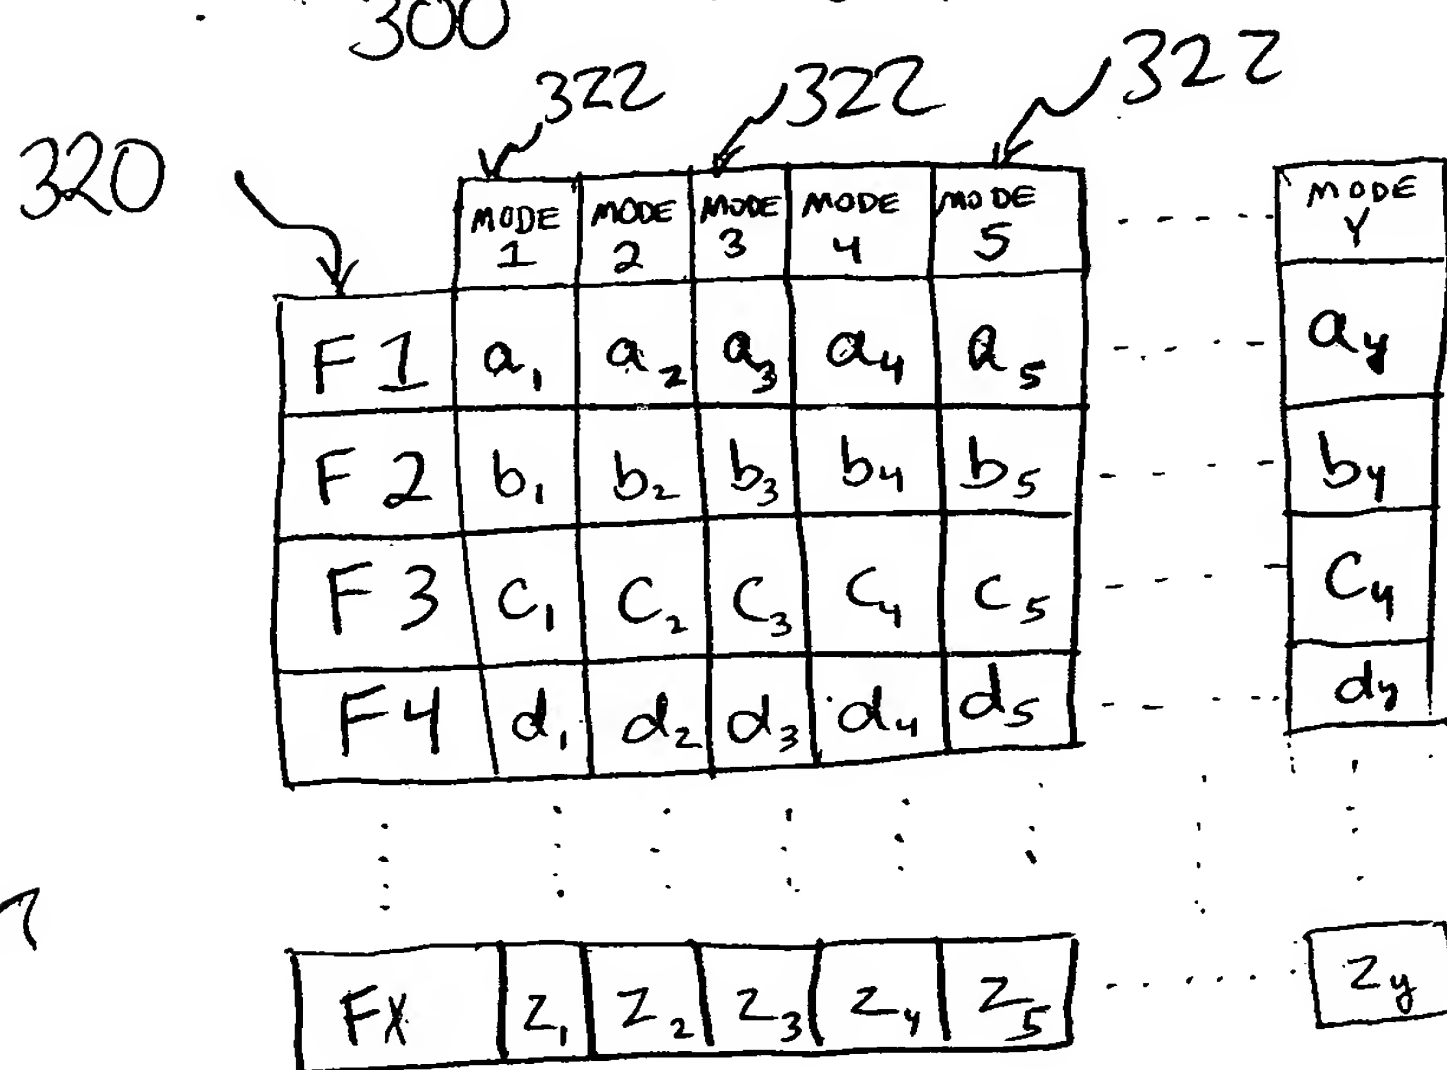 300
322 322 322
320
MODE 1 MODE 2 MODE 3 MODE 4 MODE 5 MODE Y
F1 a1 a2 a3 a4 a5 ay
F2 b1 b2 b3 b4 b5 by
F3 c1 c2 c3 c4 c5 cy
F4 d1 d2 d3 d4 d5 dy
FX z1 z2 z3 z4 z5 zy